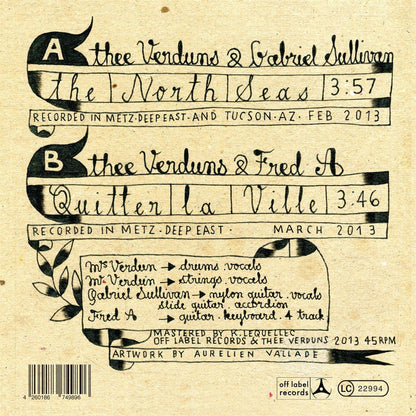 A thee Verduns & Gabriel Sullivan
the North Seas 3:57
RECORDED IN METZ·DEEP EAST·AND TUCSON·AZ· FEB 2013
B thee Verduns & Fred A
Quitter la Ville 3:46
RECORDED IN METZ·DEEP EAST· MARCH 2013
Mrs Verdun → drums.vocals
Mr Verdun → strings.vocals
Gabriel Sullivan → nylon guitar.vocals
slide guitar. accordion
Fred A → guitar.keyboard.4 track
MASTERED BY K.LEQUELLEC
OFF LABEL RECORDS & THEE VERDUNS 2013 45RPM
ARTWORK BY AURELIEN VALLADE
4 260186 749896
off label
records
LC 22994